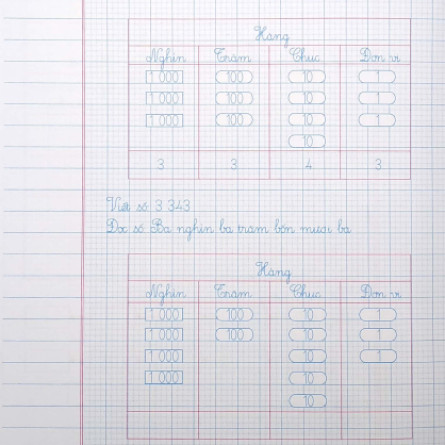 Hàng
Nghìn Trăm Chục Đơn vị
1 000 100 10 1
1 000 100 10 1
1 000 100 10 1
10
3 3 4 3
Viết số: 3 343
Đọc số: Ba nghìn ba trăm bốn mươi ba
Hàng
Nghìn Trăm Chục Đơn vị
1 000 100 10 1
1 000 100 10 1
1 000 10 1
1 000 10
10